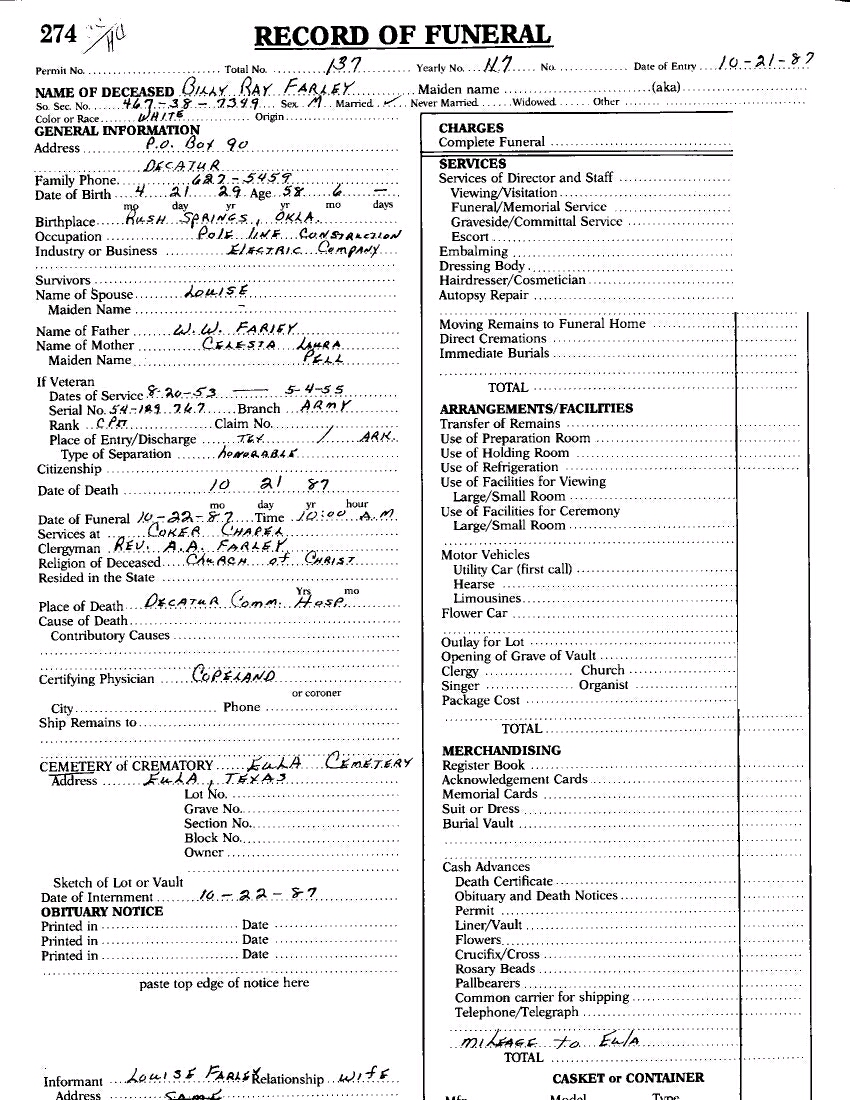 274
RECORD OF FUNERAL
Permit No. Total No. 137 Yearly No. 117 No. Date of Entry 10-21-87
NAME OF DECEASED BILLY RAY FARLEY Maiden name (aka)
So. Sec. No. 467-38-7349 Sex M Married ✓ Never Married Widowed Other
Color or Race WHITE Origin
GENERAL INFORMATION
Address P.O. BOX 90
DECATUR
Family Phone 627-5459
Date of Birth 4 21 29 Age 58 6 —
mo day yr yr mo days
Birthplace RUSH SPRINGS, OKLA.
Occupation POLE LINE CONSTRUCTION
Industry or Business ELECTRIC COMPANY
Survivors
Name of Spouse LOUISE
Maiden Name -
Name of Father W.W. FARLEY
Name of Mother CELESTA LAURA
Maiden Name PELL
If Veteran
Dates of Service 8-20-53 — 5-4-55
Serial No. 54-129 767 Branch ARMY
Rank Claim No.
Place of Entry/Discharge TEX / ARK.
Type of Separation HONORABLE
Citizenship
Date of Death 10 21 87
mo day yr hour
Date of Funeral 10-22-87 Time 10:00 A.M
Services at COKER CHAPEL
Clergyman REV. A.A. FARLEY
Religion of Deceased CHURCH of CHRIST
Resided in the State
Yrs mo
Place of Death DECATUR COMM. HOSP.
Cause of Death
Contributory Causes
Certifying Physician COPELAND
or coroner
City Phone
Ship Remains to
CEMETERY of CREMATORY EULA CEMETERY
Address EULA, TEXAS
Lot No.
Grave No.
Section No.
Block No.
Owner
Sketch of Lot or Vault
Date of Internment 10-22-87
OBITUARY NOTICE
Printed in Date
Printed in Date
Printed in Date
paste top edge of notice here
Informant LOUISE FARLEY Relationship WIFE
Address SAME
CHARGES
Complete Funeral
SERVICES
Services of Director and Staff
Viewing/Visitation
Funeral/Memorial Service
Graveside/Committal Service
Escort
Embalming
Dressing Body
Hairdresser/Cosmetician
Autopsy Repair
Moving Remains to Funeral Home
Direct Cremations
Immediate Burials
TOTAL
ARRANGEMENTS/FACILITIES
Transfer of Remains
Use of Preparation Room
Use of Holding Room
Use of Refrigeration
Use of Facilities for Viewing
Large/Small Room
Use of Facilities for Ceremony
Large/Small Room
Motor Vehicles
Utility Car (first call)
Hearse
Limousines
Flower Car
Outlay for Lot
Opening of Grave of Vault
Clergy Church
Singer Organist
Package Cost
TOTAL
MERCHANDISING
Register Book
Acknowledgement Cards
Memorial Cards
Suit or Dress
Burial Vault
Cash Advances
Death Certificate
Obituary and Death Notices
Permit
Liner/Vault
Flowers
Crucifix/Cross
Rosary Beads
Pallbearers
Common carrier for shipping
Telephone/Telegraph
MILEAGE to EULA
TOTAL
CASKET or CONTAINER
Mfg. Model Type